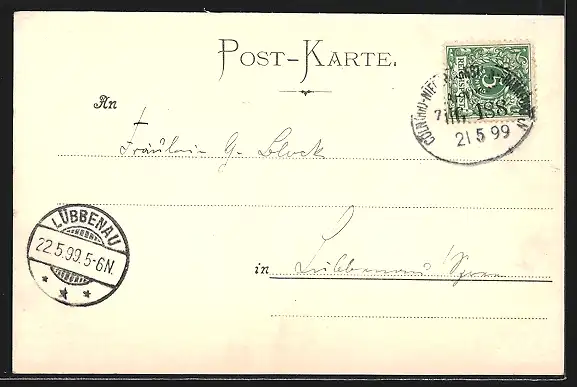 POST-KARTE.
An
Fräulein G. Block
in Lübbenau / Spree
LÜBBENAU
22.5.99.5-6N.
188
21 5 99
5